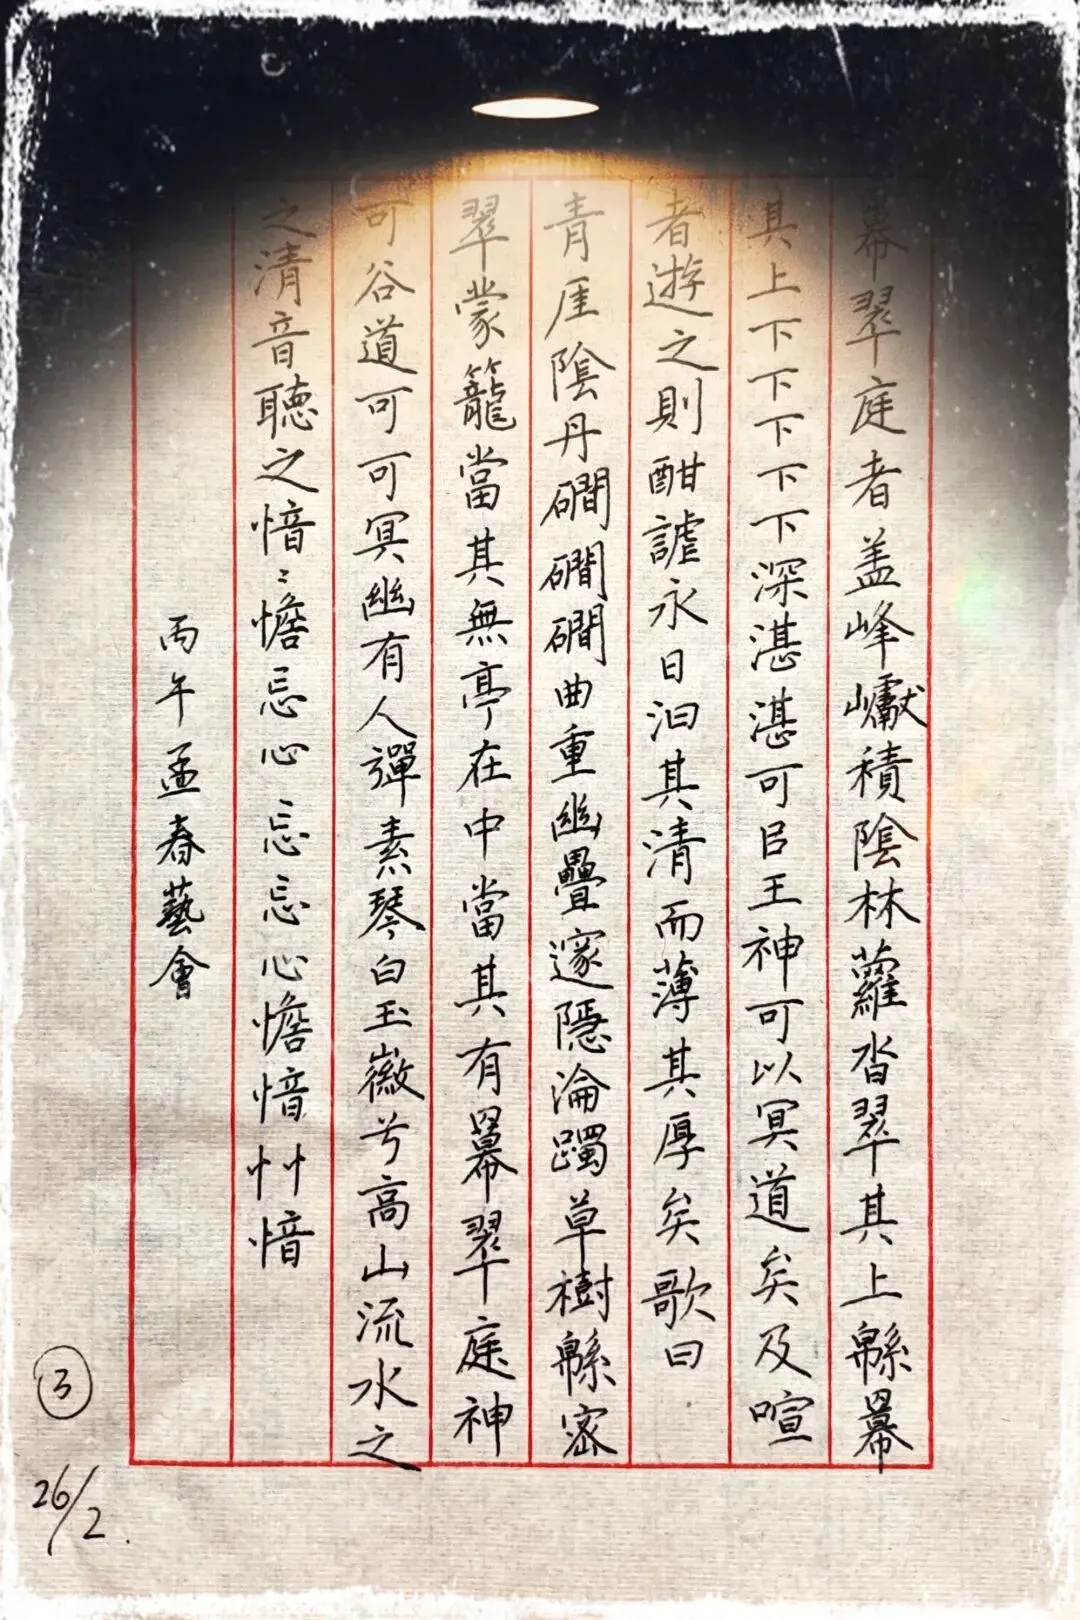 幕翠庭者盖峰巘積陰林蘿沓翠其上緜冪
其上下下下下下深湛湛可㠯王神可以冥道矣及喧
者遊之則酣謔永日汩其清而薄其厚矣歌曰
青厓陰丹磵磵磵曲重幽疊邃隱淪躅草樹緜宻
翠蒙籠當其無亭在中當其有冪翠庭神
可谷道可可冥幽有人彈素琴白玉徽兮高山流水之
之清音聽之愔〻憺忌心忘忘心憺愔忄忄愔
丙午孟春藝會
3
26/2.